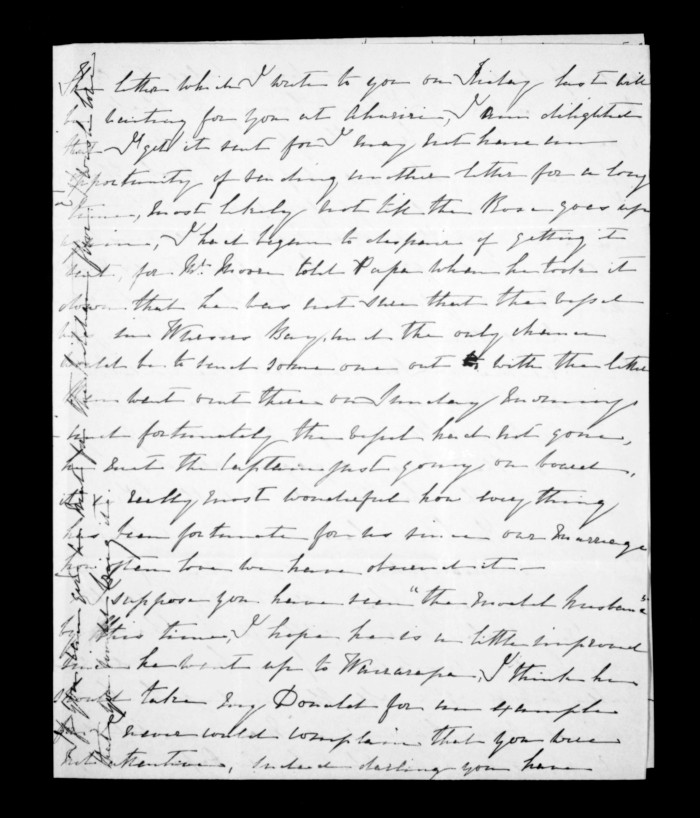 The letter which I wrote to you on Friday last will
be waiting for you at Ahuriri, I am delighted
that I get it sent for I may not have an
opportunity of sending another letter for a long
time, most likely not till the Rose goes up
again, I had begun to despair of getting it
sent, for Mr. Moore told Papa when he took it
down that he was not sure that the vessel
was in Warsers Bay, and the only chance
would be to send some one out with the letter
went out there on Sunday morning
and fortunately the vessel had not gone,
he met the Captain just going on board,
it is really most wonderful how everything
has been fortunate for us since our marriage
how often love we have observed it —
I suppose you have seen "the model husband"
by this time, I hope he is a little improved
since he went up to Wairarapa, I think he
should take my Donald for an example
I never could complain that you were
not attentive, indeed darling you have